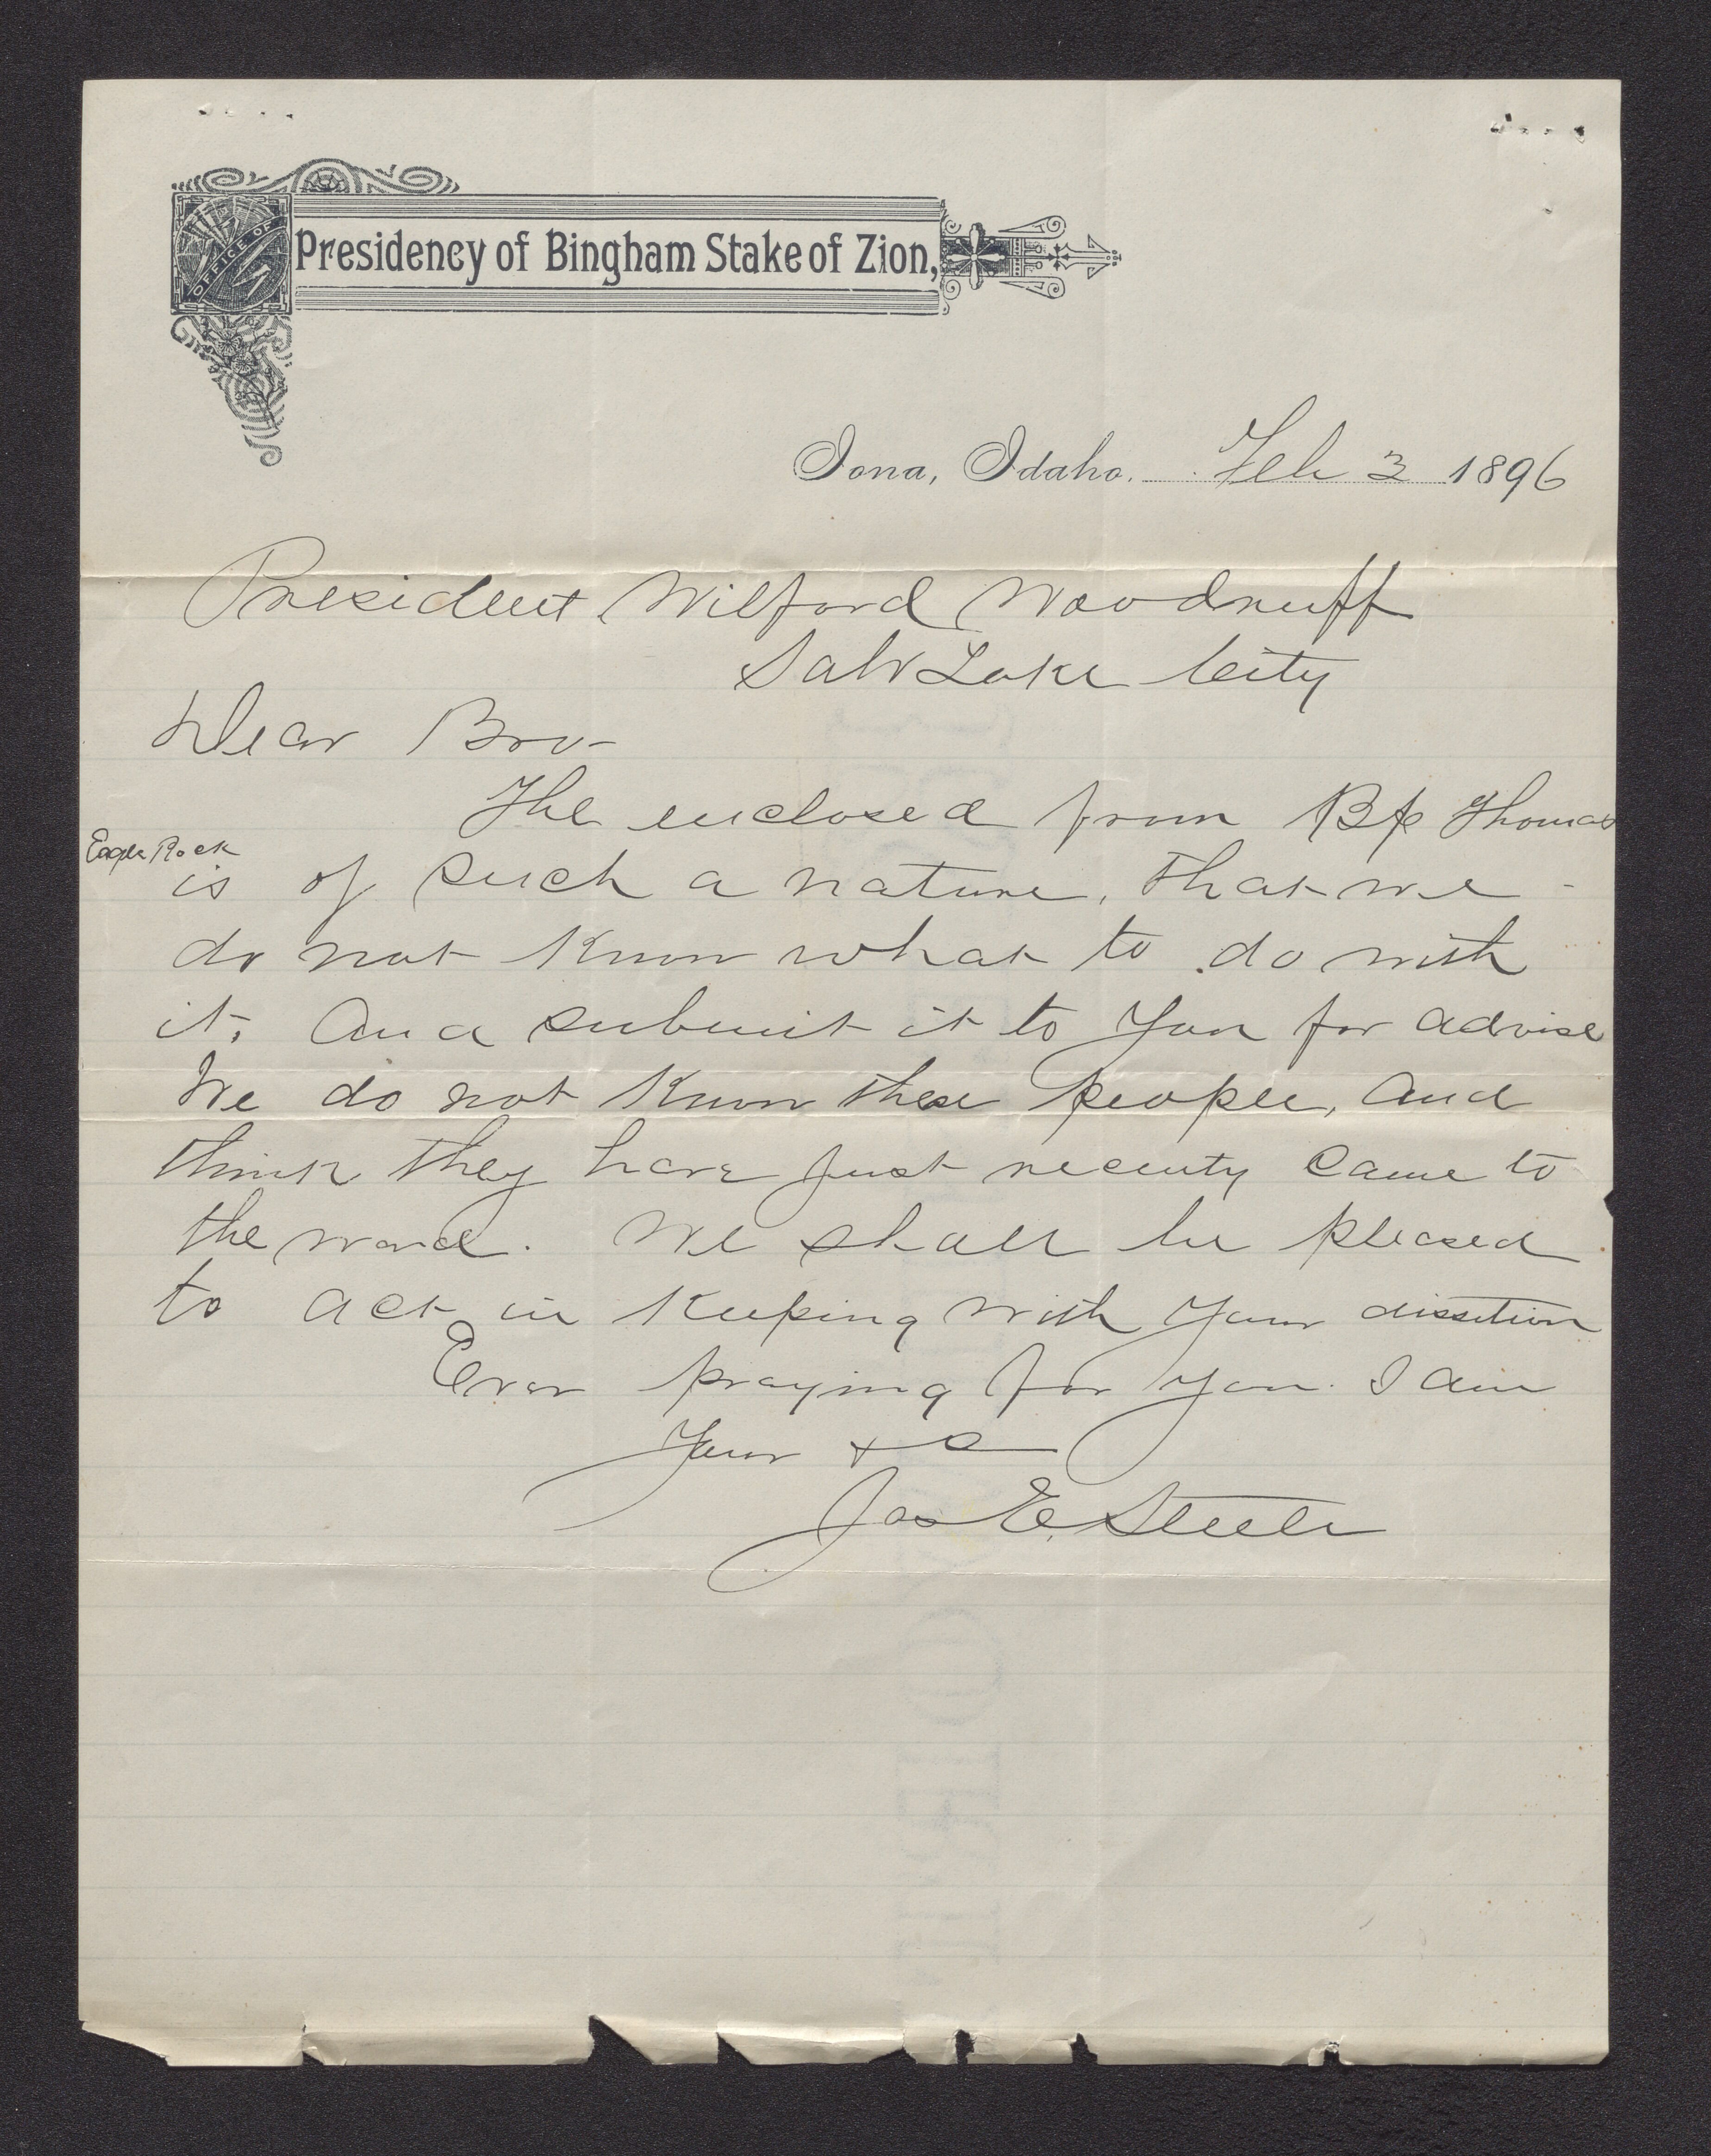 OFFICE OF
Presidency of Bingham Stake of Zion,
Iona, Idaho. Feb 3 1896
President Wilford Woodruff
Salt Lake City
Dear Bro-
The enclosed from Bp Thomas
Eagle Rock
is of such a nature, that we
do not know what to do with
it, and submit it to you for advise
We do not know these people, and
think they have just recenty came to
the ward. We shall be pleased
to act in keeping with your
Ever praying for you. I am
Your +c
Jas E. Steele